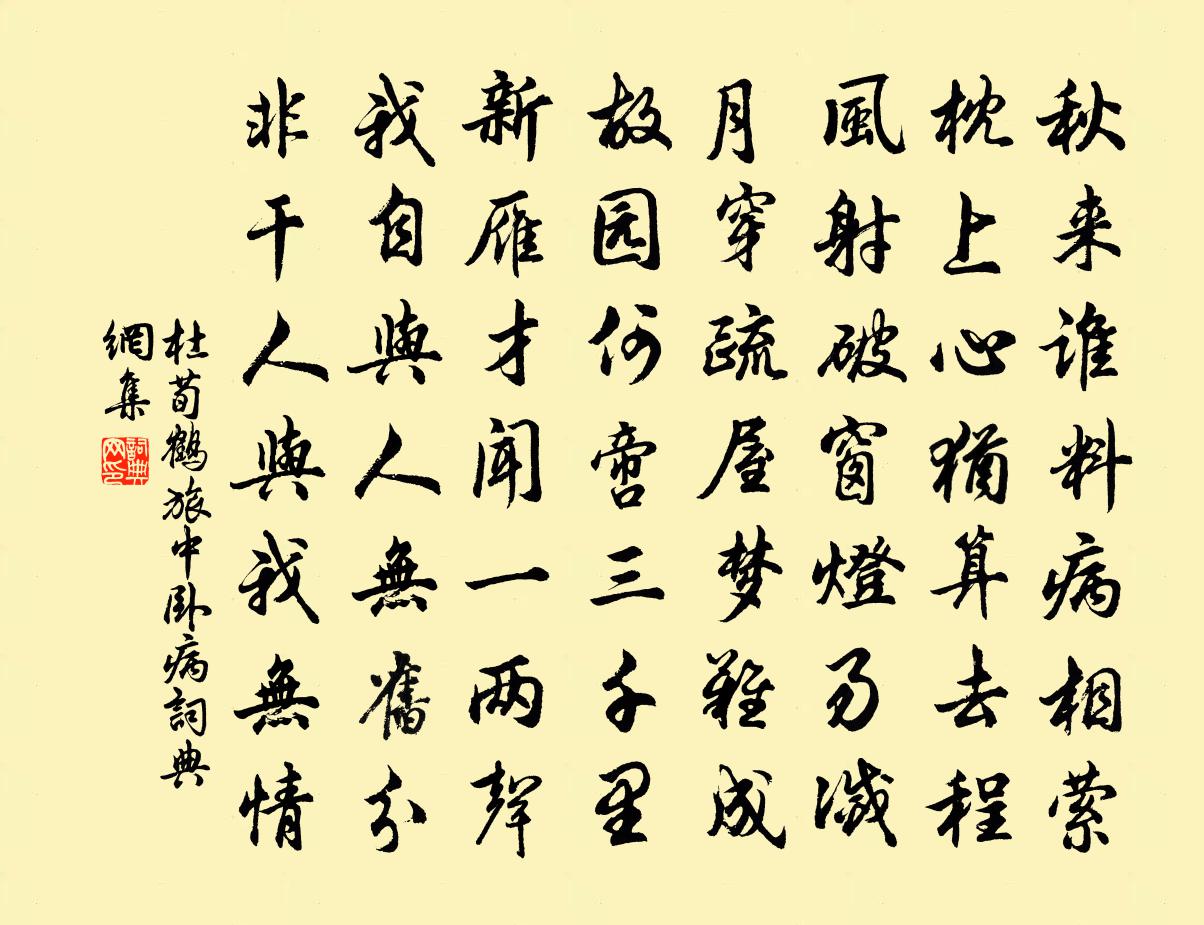 秋来谁料病相萦
枕上心猶算去程
風射破窗燈易滅
月穿疏屋梦難成
故园何啻三千里
新雁才闻一两聲
我自與人無舊分
非干人與我無情
杜荀鶴旅中卧病詞典
網集
詞典
网印